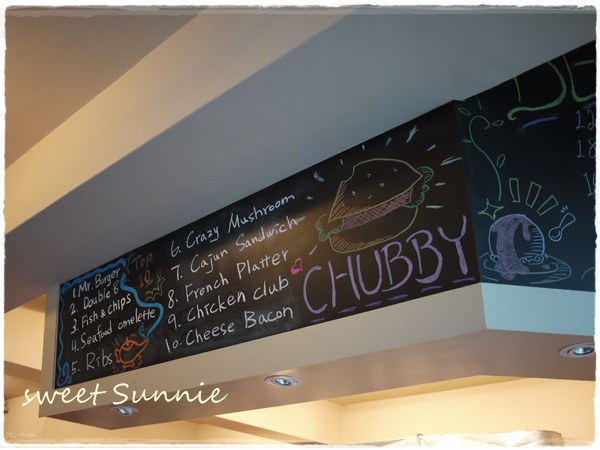 Top
10
1. Mr. Burger
2. Double B
3. Fish & chips
4. Seafood omelette
5. Ribs
6. Crazy Mushroom
7. Cajun Sandwich
8. French Platter
9. Chicken club
10. Cheese Bacon
CHUBBY
DE
sweet Sunnie